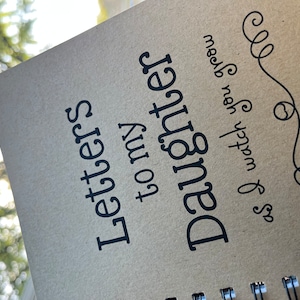 Letters
to my
Daughter
as I watch you grow